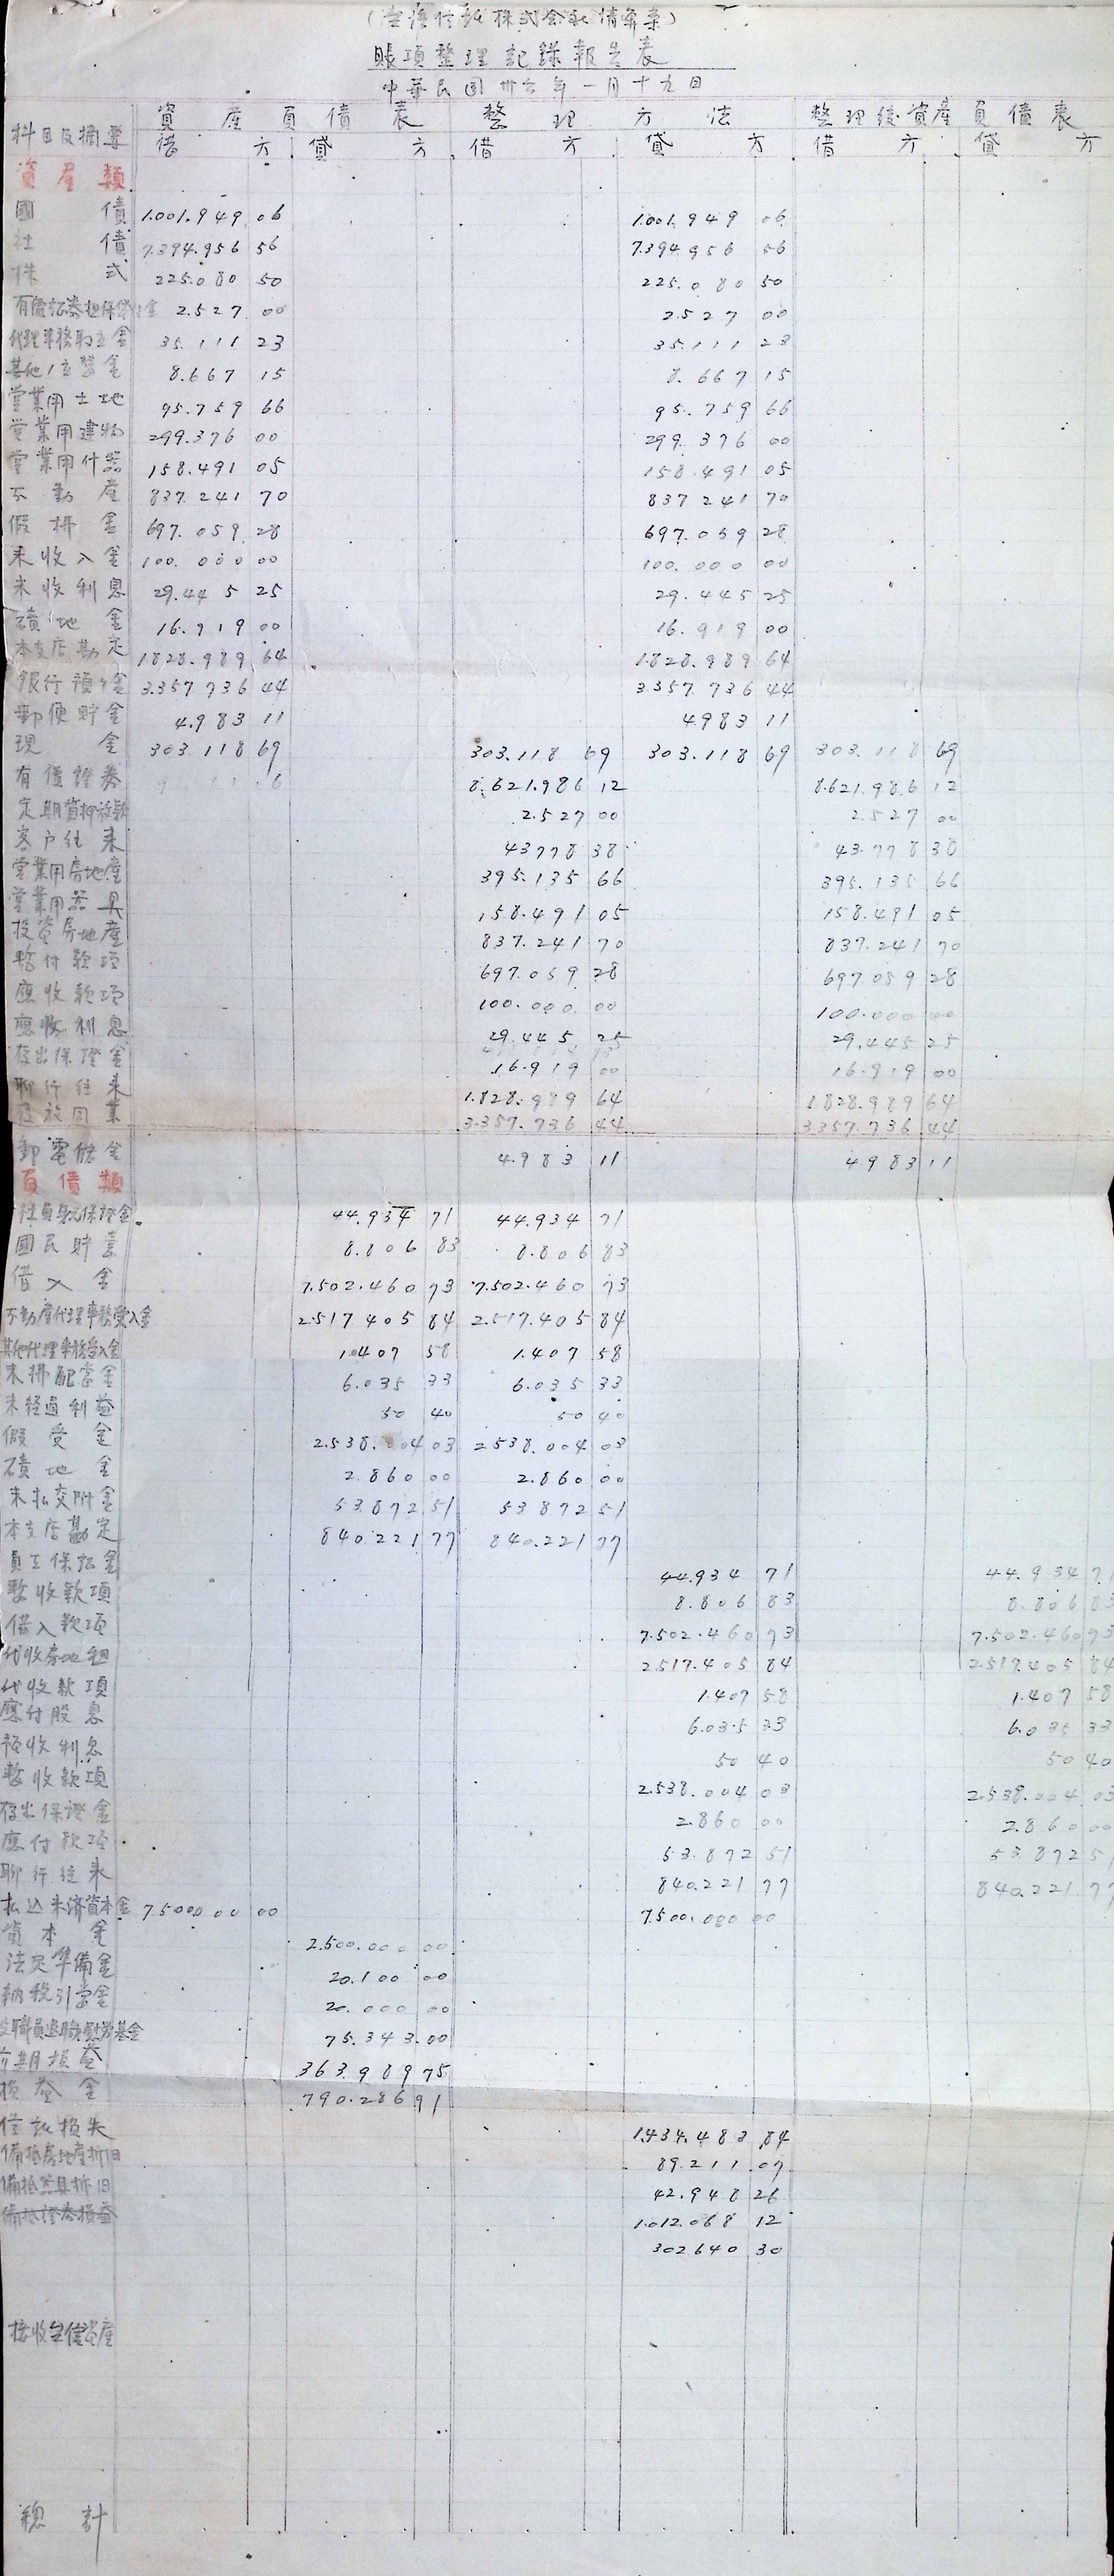 (台湾信託株式会社清算案)
賬項整理記錄報告表
中華民国卅六年一月十九日
科目及摘要 資產負債表 整理方法 整理後資產負債表
借方 貸方 借方 貸方 借方 貸方
資產類
國債 1.001.949 06 1.001.949 06
社債 7.394.956 56 7.394.956 56
株式 225.080 50 225.080 50
有價証券担保貸付金 2.527 00 2.527 00
代理事務取立金 35.111 23 35.111 23
其他ノ立替金 8.667 15 8.667 15
営業用土地 95.759 66 95.759 66
営業用建物 299.376 00 299.376 00
営業用什器 158.491 05 158.491 05
不動産 837.241 70 837.241 70
假拂金 697.059 28 697.059 28
未收入金 100.000 00 100.000 00
未收利息 29.445 25 29.445 25
積地金 16.919 00 16.919 00
本支店勘定 1.828.989 64 1.828.989 64
銀行預ケ金 3.357.736 44 3.357.736 44
郵便貯金 4.983 11 4.983 11
現金 303.118 69 303.118 69 303.118 69 303.118 69
有價證券 8.621.986 12 8.621.986 12
定期質押放款 2.527 00 2.527 00
客户往来 43.778 38 43.778 38
営業用房地產 395.135 66 395.135 66
営業用器具 158.491 05 158.491 05
投資房地產 837.241 70 837.241 70
暫付款項 697.059 28 697.059 28
應收款項 100.000 00 100.000 00
應收利息 29.445 25 29.445 25
存出保證金 16.919 00 16.919 00
聯行往来 1.828.989 64 1.828.989 64
存放同業 3.357.736 44 3.357.736 44
郵電儲金 4.983 11 4.983 11
負債類
社員身元保証金 44.934 71 44.934 71
國民貯蓄 8.806 83 8.806 83
借入金 7.502.460 73 7.502.460 73
不動產代理事務受入金 2.517.405 84 2.517.405 84
其他代理事務受入金 1.407 58 1.407 58
未拂配當金 6.035 33 6.035 33
未経過利益 50 40 50 40
假受金 2.538.004 03 2.538.004 03
積地金 2.860 00 2.860 00
未払交附金 53.872 51 53.872 51
本支店勘定 840.221 77 840.221 77
員工保証金 44.934 71 44.934 71
暫收款項 8.806 83 8.806 83
借入款項 7.502.460 73 7.502.460 73
代收房地租 2.517.405 84 2.517.405 84
代收款項 1.407 58 1.407 58
應付股息 6.035 33 6.035 33
預收利息 50 40 50 40
暫收款項 2.538.004 03 2.538.004 03
存出保證金 2.860 00 2.860 00
應付款項 53.872 51 53.872 51
聯行往来 840.221 77 840.221 77
払込未済資本金 7.500.000 00 7.500.000 00
資本金 2.500.000 00
法定準備金 20.100 00
納税引當金 20.000 00
職員退職慰労基金 75.343.00
前期損益 363.989 75
損益金 790.286 91
信託損失 1.434.483 84
備抵房地產折旧 89.211 07
備抵器具折旧 42.948 26
備抵證券損益 1.012.068 12
302.640 30
接收台信資產
總計